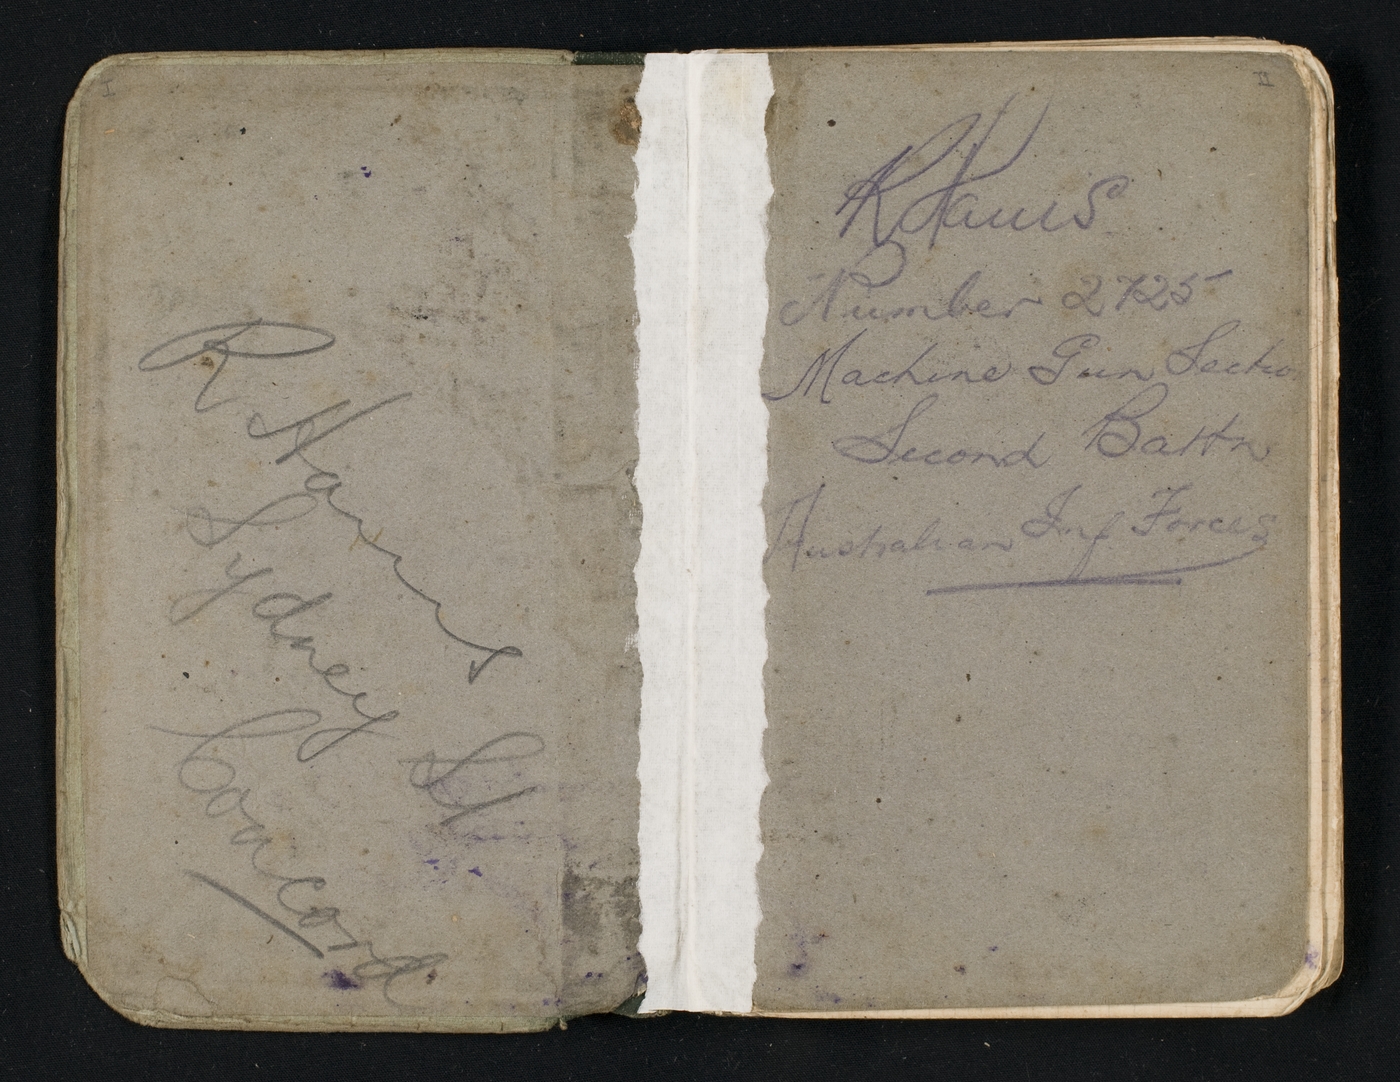 I
R Harris
Sydney St
Concord
II
R Harris
Number 2725
Machine Gun Sectio
Second Battn
Australian Inf Forces